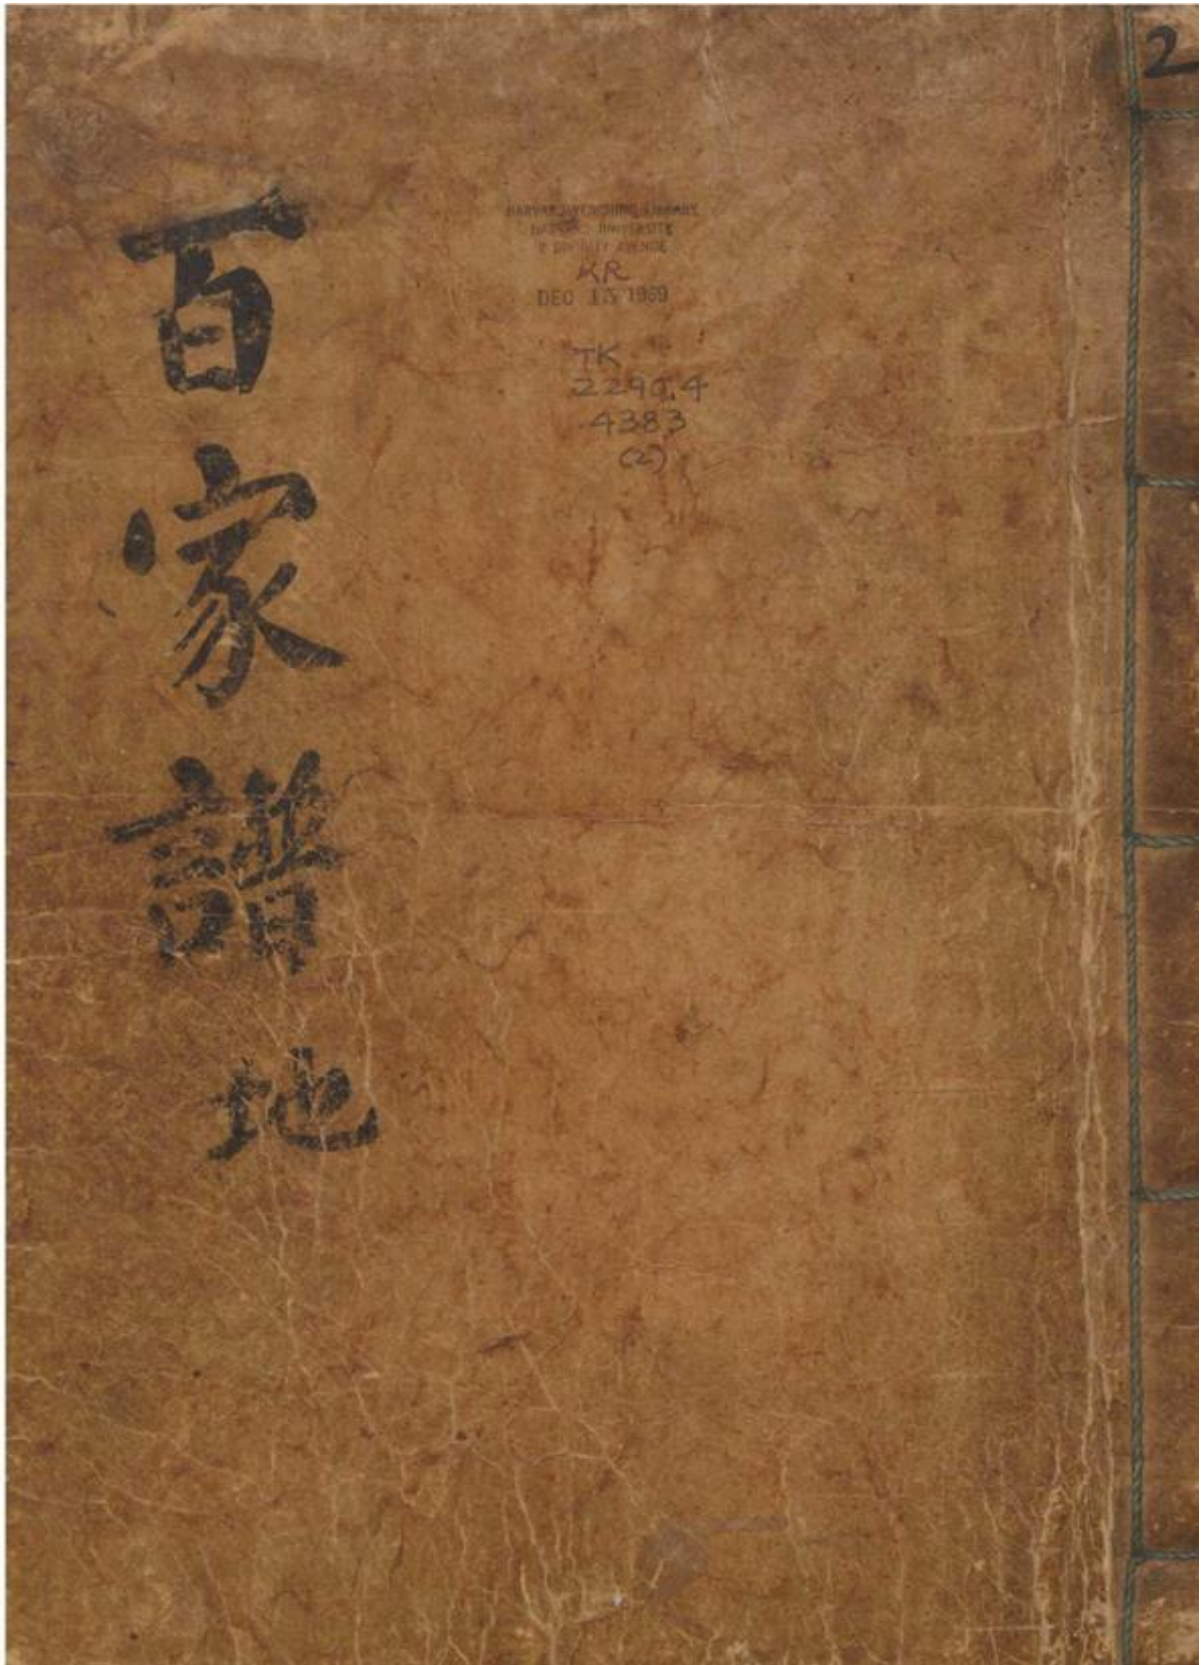 百家譜
地
2
HARVARD-YENCHING LIBRARY
HARVARD UNIVERSITY
2 DIVINITY AVENUE
KR
DEC 15 1969
TK
2290.4
4383
(2)